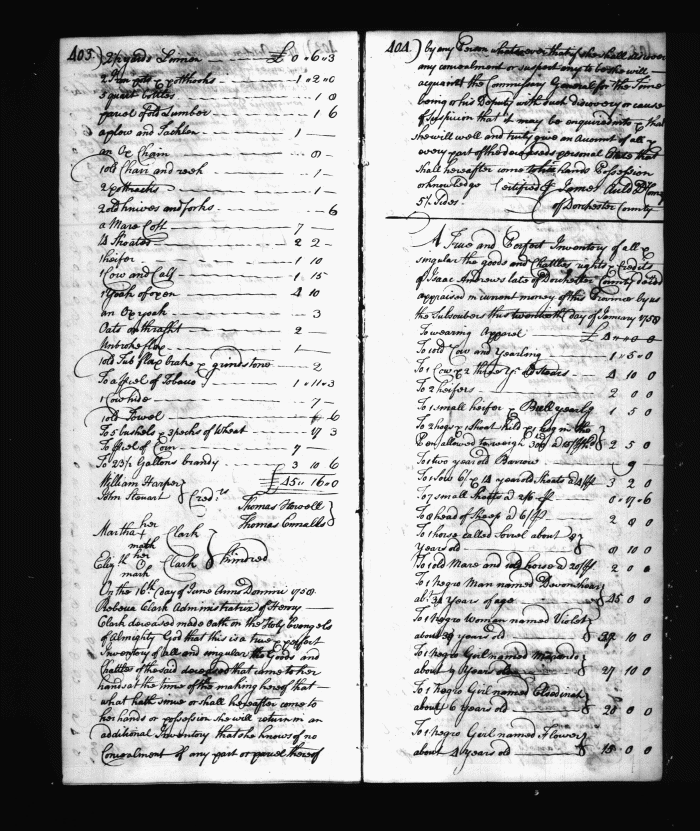 403.) 2½ yards Linnen £ 0 " 6 " 3
2 Iron pots & pothooks 1 " 2 " 0
5 quart bottles 1 8
parcel of old Lumber 1 6
a plow and Tackler 1 —
an Ox Chain 8
1 old Chair and reek 1 —
2 pottracks 1 —
2 old knives and forks 6
a Mare Colt 7 —
14 Shoates 2 2 -
1 heifer 1 10
1 Cow and Calf 1 15
1 Yoak of oxen 4 10
an Ox yoak 3
Oats on thrasht 2
Unbroke flax 1
1 old Tub flax brake & grindstone 2
To a of Tobacco 1 " 11 " 3
1 Cow hide 7 -
1 old Towel 6
To 5 bushels & 3 pecks of Wheat 17 3
To of Corn 7 —
To 23½ Gallons brandy 3 10 6
William Harper £45 " 16 " 0
John Steuart } Cred.rs
Thomas Newell
Thomas Ennalls }
Martha her mark Clark
Eliz.th her mark Clark } kindred
On the 16th day of June Anno Domini 1758
Rebecca Clark Administratrix of Henry
Clark deceased made oath on the Holy Evangels
of Almighty God that this is a true & perfect
Inventory of all and singular the Goods and
Chattles of the said deceased that came to her
hands at the time of the making hereof that
what hath since or shall hereafter come to
her hands or possession she will return in an
additional Inventory that she knows of no
Concealment of any part or parcel thereof
404.) by any Person whatsoever that if she shall discover
any concealment or suspect any to be she will
acquaint the Commissary General for the Time
being or his Deputy with such discovery or cause
of suspicion that it may be enquired into & that
she will well and truly give an Account of all &
every part of the deceaseds personal Estate that
shall hereafter come to her hands Possession
or knowledge Certified James Auld D Com.y
5½ Sides of Dorchester County
A True and Perfect Inventory of all &
singular the goods and Chattles rights & Credits
of Isaac Andrews late of Dorchester County dated
appraised in current money of this Province by us
the Subscribers this twentieth day of January 1758
To wearing Apparel £ 4 " 0 " 0
To 1 old Cow and Yearling 1 " 5 " 0
To 1 Cow & 2 three Y.r old Steers 4 10 0
To 2 heifers 2 0 0
To 1 small heifer & Bull yearlg 1 5 0
To 2 hogs 1 shoat kild & 1 hog in the
Pen allowed to weigh 300 2 5 0
To 1 two year old Barrow 9 —
To 1 Sow & 4 year old Shoats 3 2 0
To 7 small Shoats at 2/6 0 " 17 " 6
To 8 head of Sheep at 6/ 2 8 0
To 1 horse called Sorrel about 8
Years old 8 10 0
To 1 old Mare and old horse at 20/ 2 0 0
To 1 Negro Man named Devonshear
ab.t 34 Years of age 45 0 0
To 1 Negro Woman named Violet
about 39 years old 39 10 0
To 1 Negro Girl named
about 9 Years old 27 10 0
To 1 Negro Girl named
about 6 Years old 20 0 0
To 1 Negro Girl named Flower
about 4 Years old 15 0 0